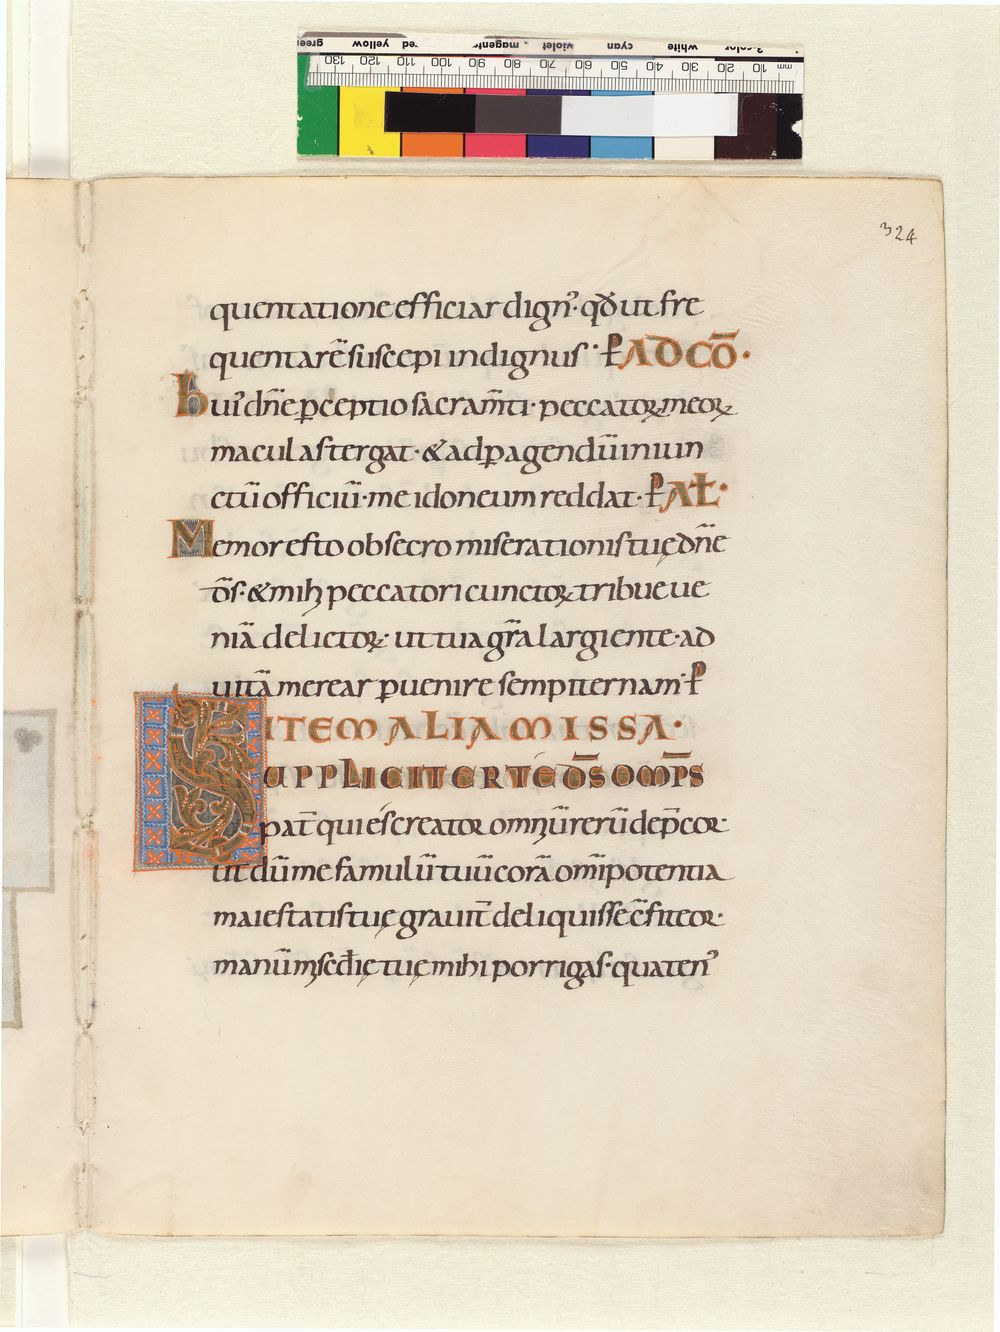 green yellow red magenta violet cyan white 3-color
130 120 110 100 90 80 70 60 50 40 30 20 10 mm
324
quentatione efficiar dignꝰ· qđ ut fre
quentarē̄ suscepi indignus· P̄ AD CŌ·
huiꝰ dn̄e ꝑceptio sacram̄ti· peccatoꝝ meoꝝ
maculas tergat· & ad ꝑagendū iniun
ctū officiū· me idoneum reddat· P̄ AŁ·
Memor esto obsecro miserationis tuę dn̄e
d̄s· & mihi peccatori cunctoꝝ tribue ue
niā delictoꝝ· ut tua gr̄a largiente· ad
uitā merear ꝑuenire sempiternam· P̄
ITEM ALIA MISSA·
SUPPLICITER TE D̄S OMP̄S
pat̄ qui es creator omniū rerū dep̄cor·
ut dū me famulū tuū corā om̄ipotentia
maiestatis tuę grauit̄ deliquisse c̄fiteor·
manū m̄sc̄dię tuę mihi porrigas· quatenꝰ